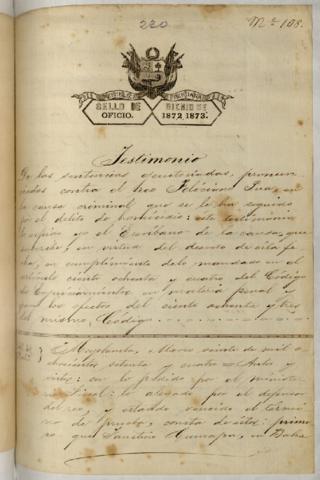 220
Nº 108.
SELLO DE OFICIO.
BIENIO DE 1872, 1873.
Testimonio
De las sentencias ejecutoriadas, pronun
ciadas contra el reo Feliciano Pua, en
la causa criminal que se le ha seguido
por el delito de homicidio: este testimonio
lo yo el Escribano de la causa, que
suscribe, en virtud del decreto de esta fe
cha, en cumplimiento de lo mandado en el
artículo ciento ochenta y cuatro del Código
de Enjuiciamientos en materia penal y
para los efectos del ciento ochenta y tres
del mismo Código
Moyobamba, Marzo veinte de mil o
chocientos setenta y cuatro. Autos y
vistos: con lo pedido por el ministe
rio Fiscal: lo alegado por el defensor
del reo, y estando vencido el térmi
no de prueba, consta de estos: prime
ro que Faustino Huinapa, en